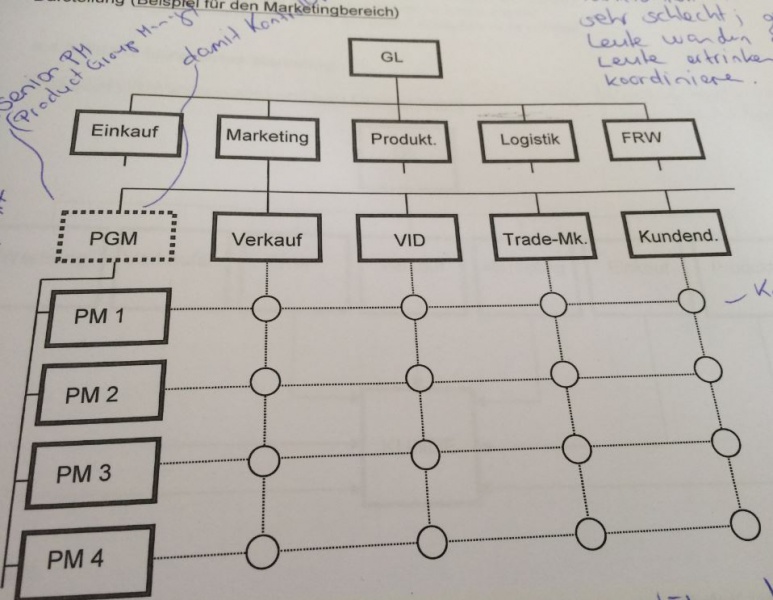 (Beispiel für den Marketingbereich)
Senior PM
(Product Group
damit
sehr schlecht,
Leute
Leute ertrinken
koordiniere.
GL
Einkauf
Marketing
Produkt.
Logistik
FRW
PGM
Verkauf
VID
Trade-Mk.
Kundend.
PM 1
PM 2
PM 3
PM 4